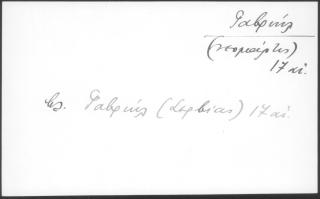 Γαβριήλ
(νεομάρτυς)
17 αἰ.
βλ. Γαβριήλ (Σερβίας) 17 αἰ.